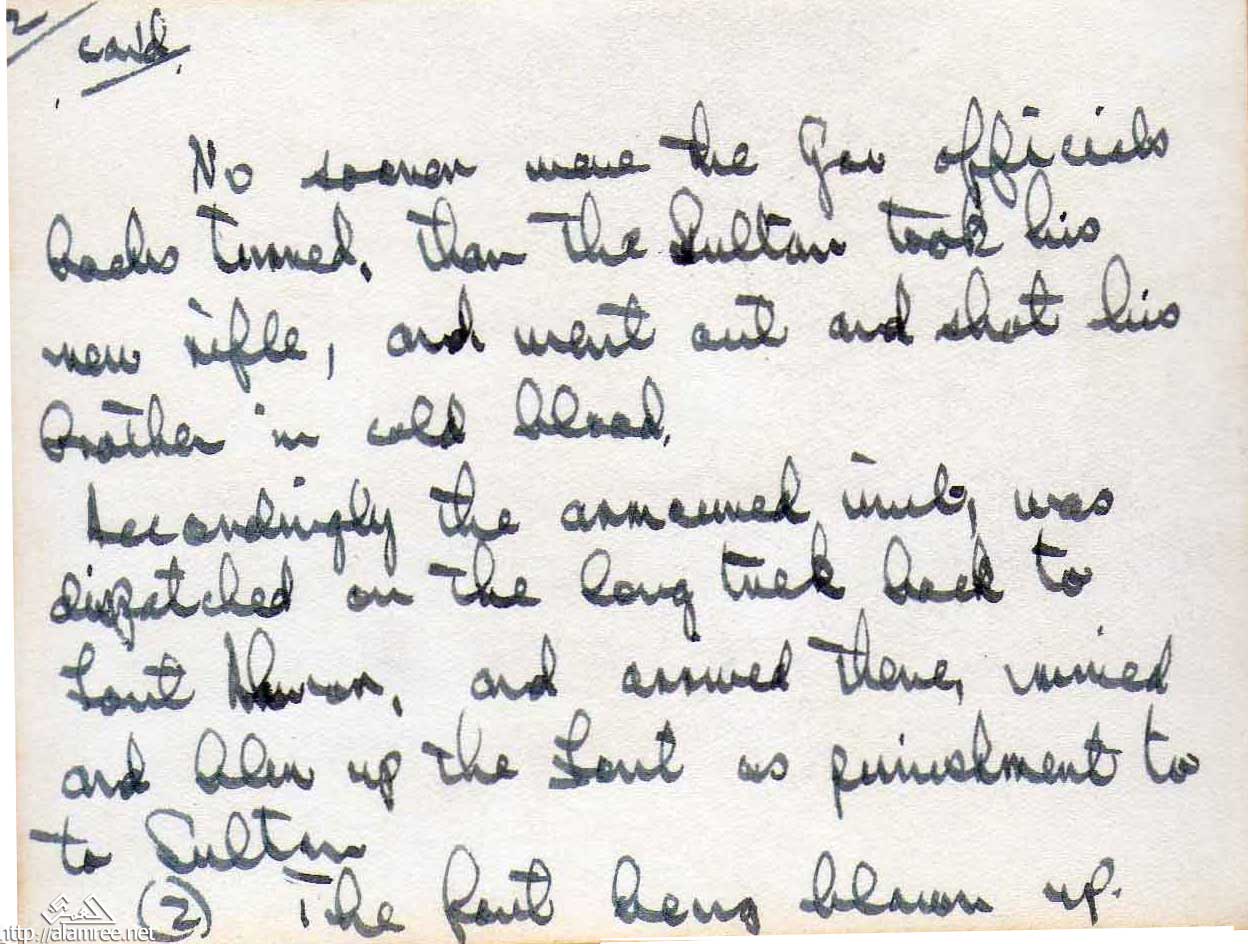 2/ contd.
No sooner were the Gov officials
backs turned, than the Sultan took his
new rifle, and went out and shot his
brother in cold blood.
Accordingly the armoured unit, was
dispatched on the long trek back to
Fort, and arrived there, mined
and blew up the Fort as punishment to
to Sultan
(2) The fort being blown up.
http://alamree.net